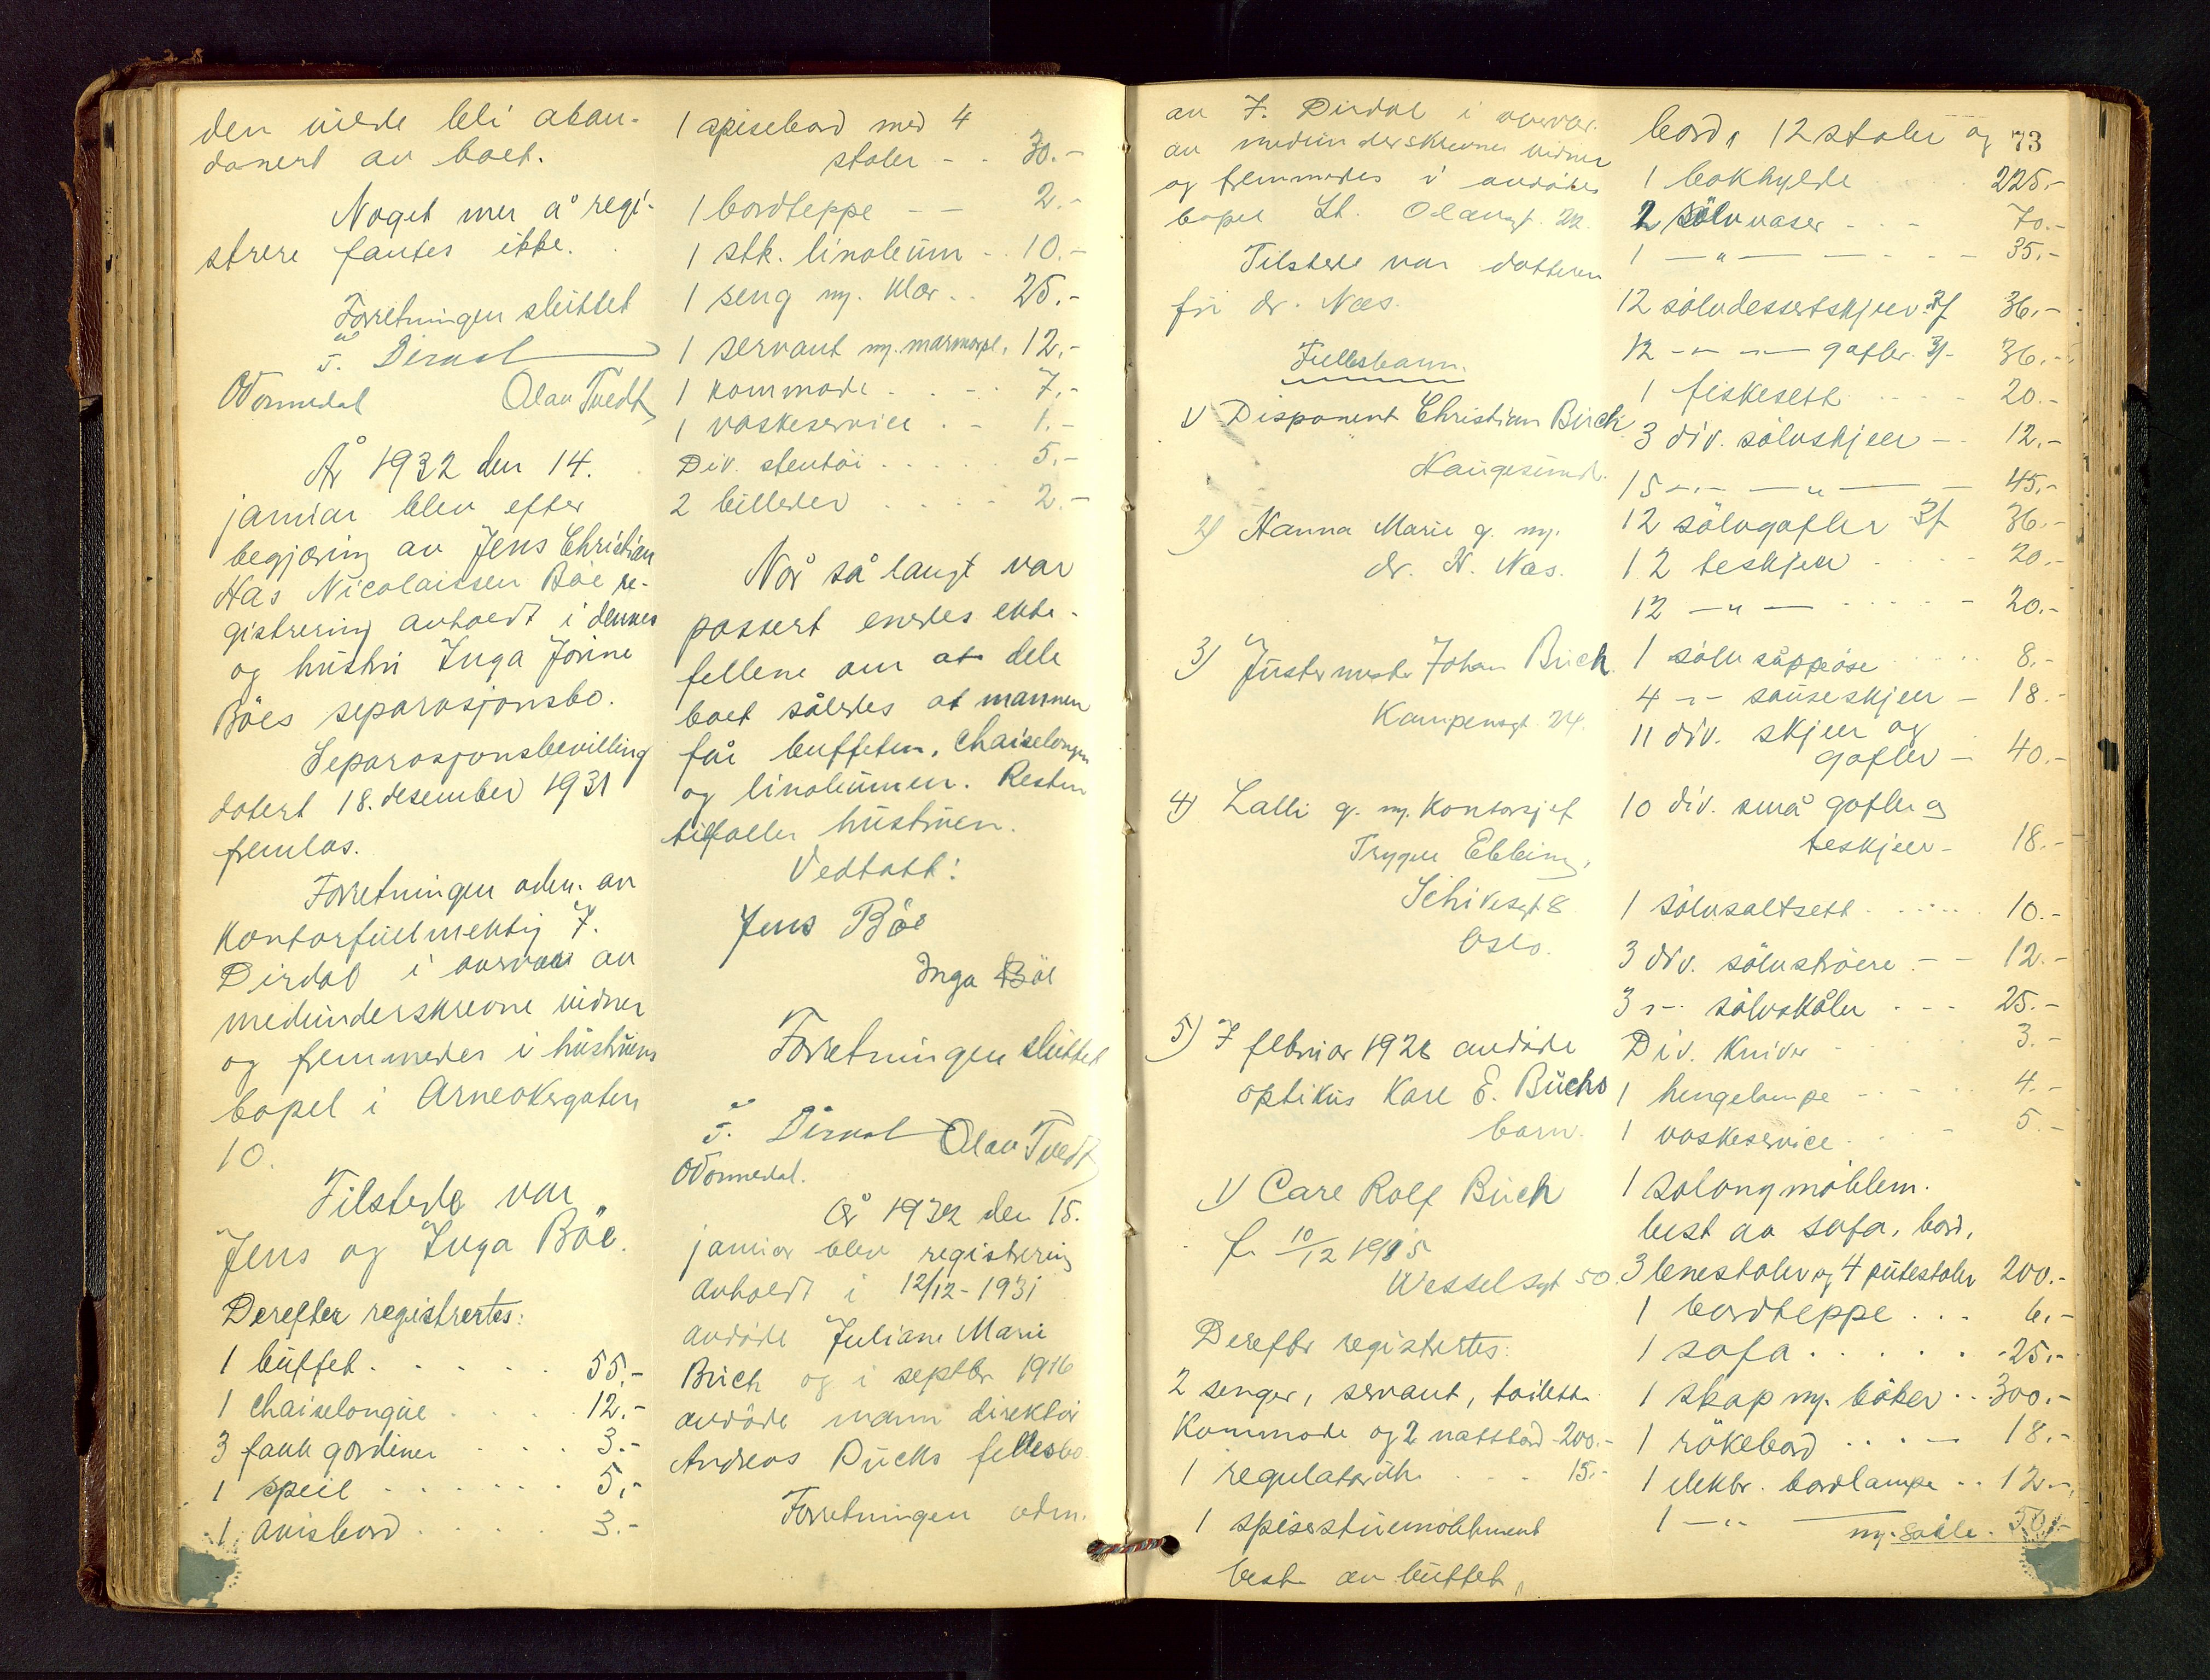 den vilde bli aban-
donert av boet.
Noget mer å regi-
strere fantes ikke.
Forretningen sluttet
J. Dirdal
O Vormedal Olav Tvedt
År 1932 den 14.
januar blev efter
begjæring av Jens Christian
Has Nicolaissen Böe re-
gistrering avholdt i dennes
og hustru Inga Jorine
Böes separasjonsbo.
Separasjonsbevilling
datert 18. desember 1931
fremlas.
Forretningen adm. av
kontorfullmektig J.
Dirdal i overvær av
medunderskrevne vidner
og fremmedes i hustruens
bopel i Arneakergaten
10.
Tilstede var
Jens og Inga Böe.
Derefter registrertes:
1 buffet . . . . . 55.-
1 chaiselongue . . . . 12.-
3 fakk gardiner . . . 3.-
1 speil . . . . . . 5.-
1 avisbord . . . . 3.-
1 spisebord med 4
stoler - . 30.-
1 bordteppe - - 2.-
1 stk. linoleum . . 10.-
1 seng m. klær . . 25.-
1 servant m. marmorpl. 12.-
1 kommode . . . . 7.-
1 vaskeservice . - 1.-
Div. stentöi . . . . . 5.-
2 billeder . . . . 2.-
Når så langt var
passert enedes ekte-
fellene om at dele
boet således at mannen
får buffeten, chaiselongen
og linoleumen. Resten
tilfaller hustruen.
Vedtatt:
Jens Böe
Inga Böe
Forretningen sluttet
J. Dirdal Olav Tvedt
O Vormedal.
År 1932 den 15.
januar blev registrering
avholdt i 12/12-1931
avdöde Juliane Marie
Buch og i septbr 1916
avdöde mann direktör
Andreas Buchs fellesbo.
Forretningen adm.
av J. Dirdal i overvær
av medunderskrevne vidner
og fremmedes i avdödes
bopel St. Olavsgt. 22.
Tilstede var datteren
fru dr. Næs.
Fellesbarn.
1) Disponent Christian Buch
Haugesund.
2) Hanna Marie g. m.
dr. N. Næs.
3) Justermester Johan Buch
Kampensgt. 24.
4) Lalli g. m. Kontorsjef
Trygve Ebbing,
Schivesgt 8
Oslo.
5) I februar 1928 avdöde
optikus Karl E. Buchs
barn.
1) Care Rolf Buch
f. 10/12 1915
Wesselsgt 50.
Derefter registrertes:
2 senger, servant, toilett
kommode og 2 nattbord - 200.-
1 regulatorur . . . 15.-
1 spisestuemöblement
best. av buffet,
73
bord, 12 stoler og
1 bokhylde . . . 225.-
2 sölvvaser . . - 70.-
1 -"- - . . - 35.-
12 sölvdessertskjeer 3/ 36.-
12 -"- -"- gafler 3/- 36.-
1 fiskesett . . . . 20.-
3 div. sölvskjeer - . 12.-
15 -"- -"- - 45.-
12 sölvgafler 3/ 36.-
12 teskjeer . . . 20.-
12 -"- . . . . 20.-
1 sölv suppeöse . . . . 8.-
4 -"- sauseskjeer - 18.-
11 div. skjeer og
gafler - 40.-
10 div. små gafler og
teskjeer - 18.-
1 sölvsaltsett . . . . . 10.-
3 div. sölvströere . - - 12.-
3 -"- sölvskåler . . - 25.-
Div. kniver . . . 3.-
1 hengelampe - . - 4.-
1 vaskeservice . . . - 5.-
1 salongmöblem.
best av sofa, bord,
3 lenestoler og 4 putestoler 200.-
1 bordteppe . . . 6.-
1 sofa . . . . . 25.-
1 skap m. böker . . 300.-
1 rökebord . . . - 18.-
1 elektr. bordlampe . . 12.-
1 -"- m. söile . 50.-